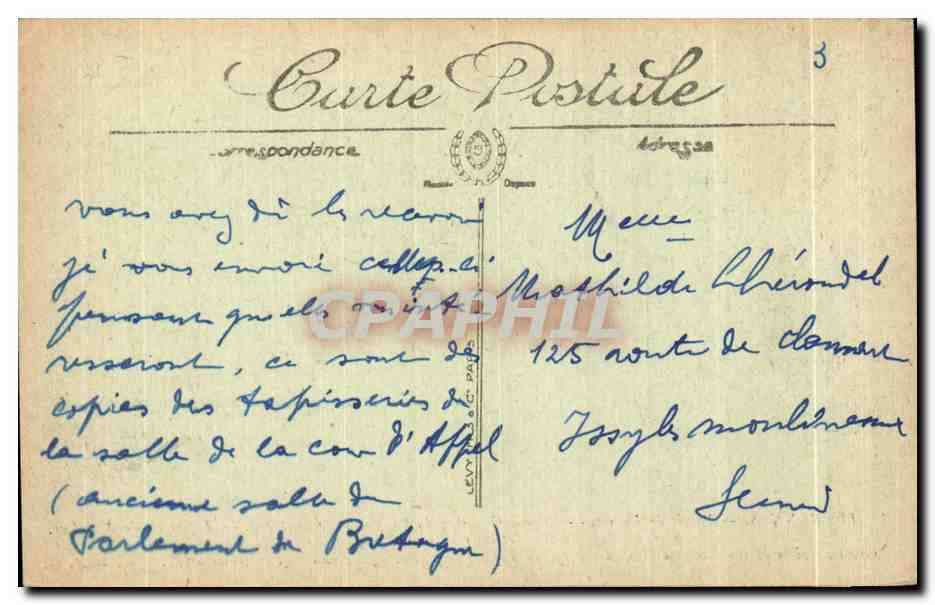 3
Carte Postale
Correspondance
Adresse
vous avez dû les recevoir
je vous envoie celles-ci
pensant qu'elles vous inté
resseront, ce sont des
copies des tapisseries de
la salle de la cour d'Appel
(ancienne salle du
Parlement de Bretagne)
LEVY & Cie PARIS
Melle
Mathilde
125 route de Clamart
Issy les moulineaux
Seine
CPAPHIL